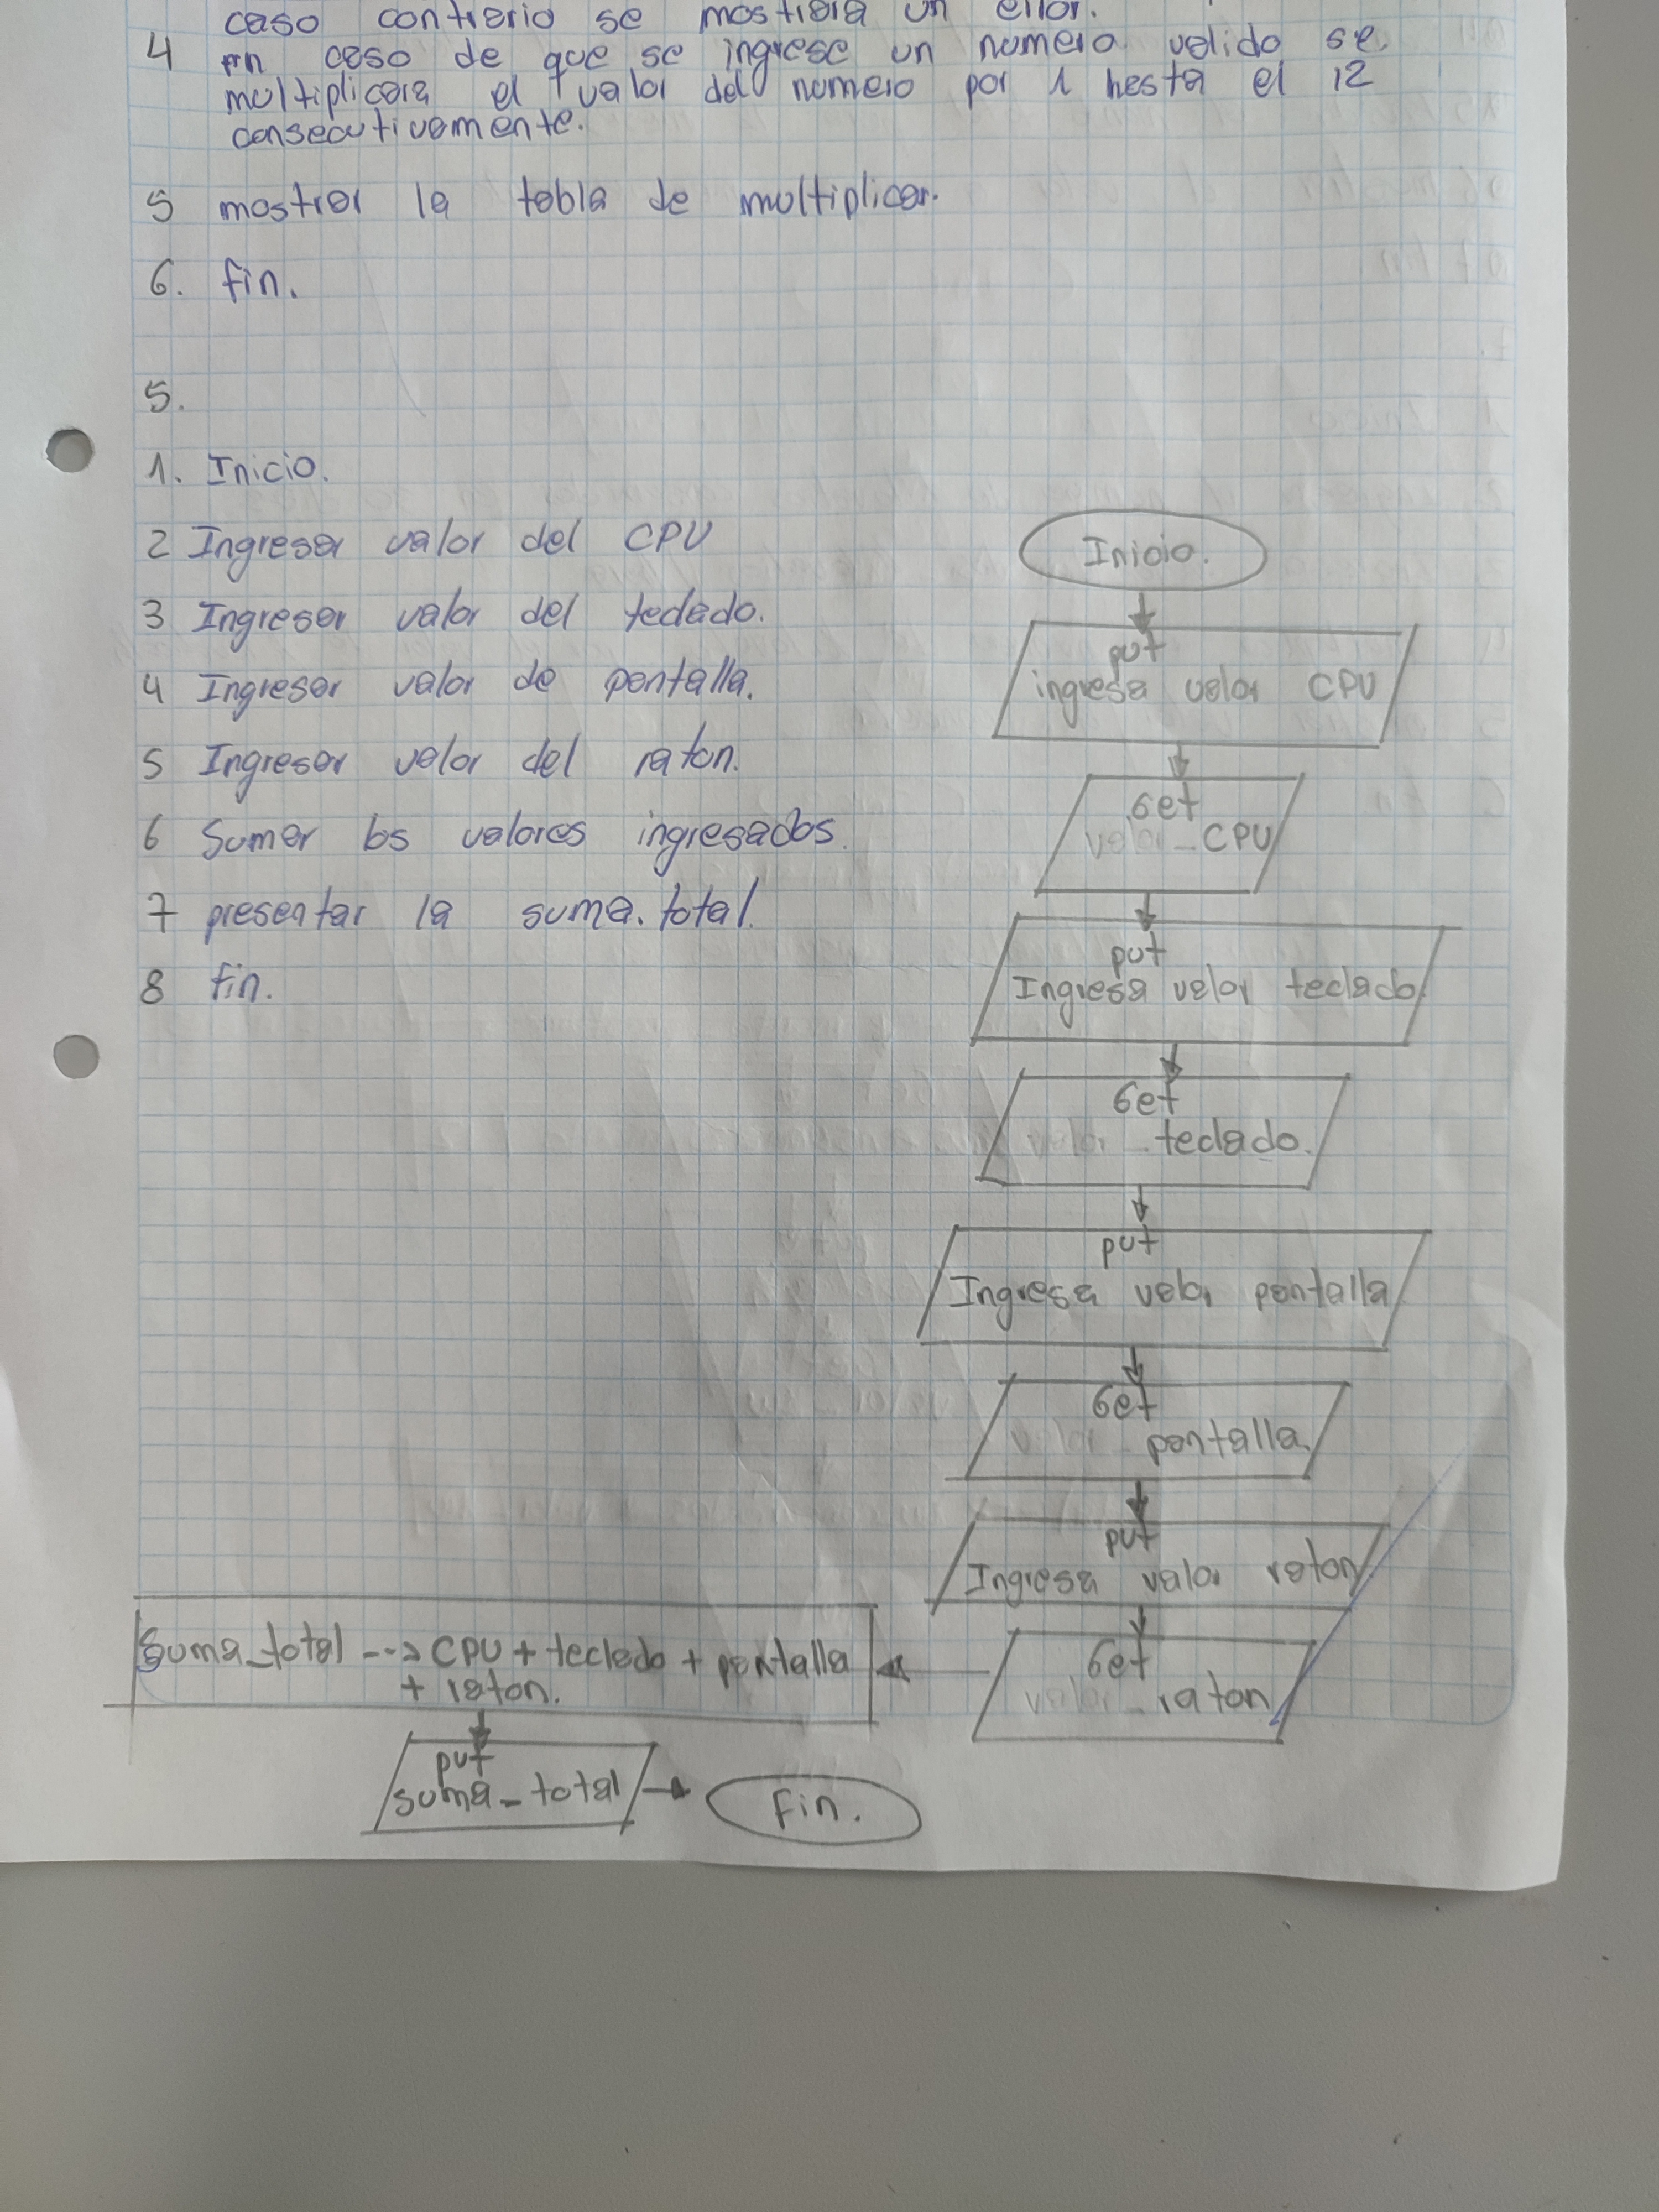 caso contrario se mostrara un error.
4 en caso de que se ingrese un numero valido se
multiplicara el valor del numero por 1 hasta el 12
consecutivamente.
5 mostrar la tabla de multiplicar.
6. fin.
5.
1. Inicio.
2 Ingresar valor del CPU
3 Ingresar valor del teclado.
4 Ingresar valor de pantalla.
5 Ingresar valor del raton.
6 Sumar los valores ingresados.
7 presentar la suma. total.
8 fin.
Inicio.
put
ingresa valor CPU
Get
valor_CPU
put
Ingresa valor teclado
Get
valor_teclado.
put
Ingresa valor pantalla
Get
valor_pantalla.
put
Ingresa valor raton
Get
valor_raton
suma_total --> CPU + teclado + pantalla
+ raton.
put
suma_total
Fin.